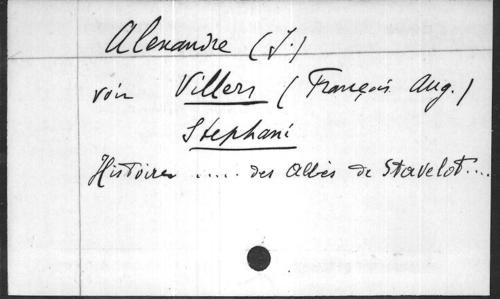 Alexandre (J.)
voir Villers (François Aug.)
Stephani
Histoire ..... des Abbés de Stavelot....